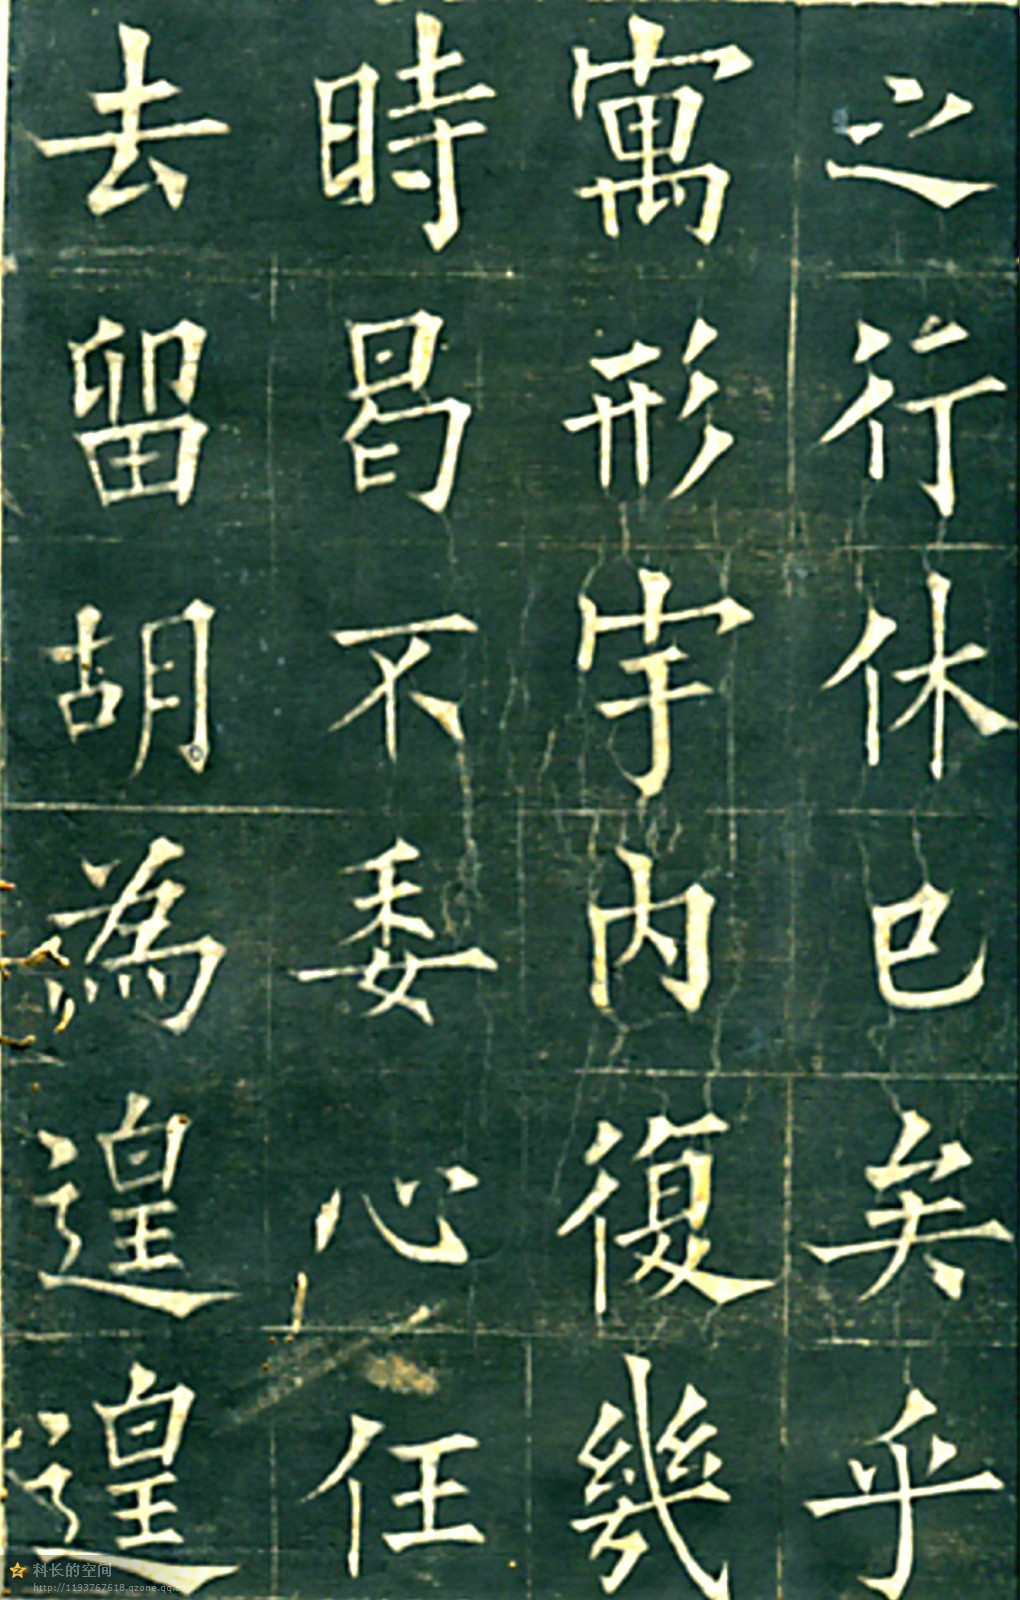 之行休已矣乎
寓形宇内復幾
時曷不委心任
去留胡為遑遑
科长的空间
http://1193767618.qzone.qq.c